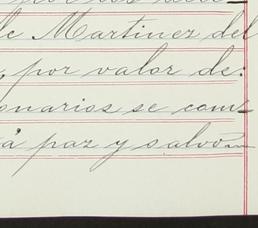 de Martinez del
, por valor de:
onarios se com-
á paz y salvo